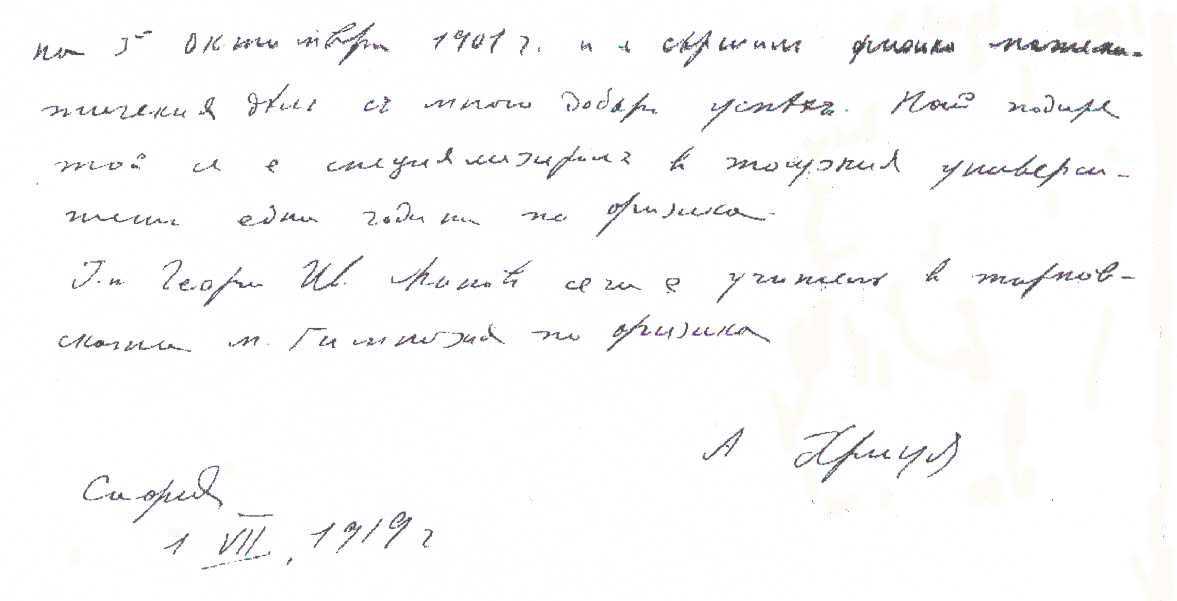 на 5 октомври 1901 г. и я свърши физико матема-
тическия отдѣлъ съ много добъръ успѣхъ. подиръ
той се е специялизиралъ в университе-
една година по физика.
Г-н Георги Ив. сега е учитель в търнов-
ската м. Гимназия по физика
А Христовъ
София
1 VII, 1919 г